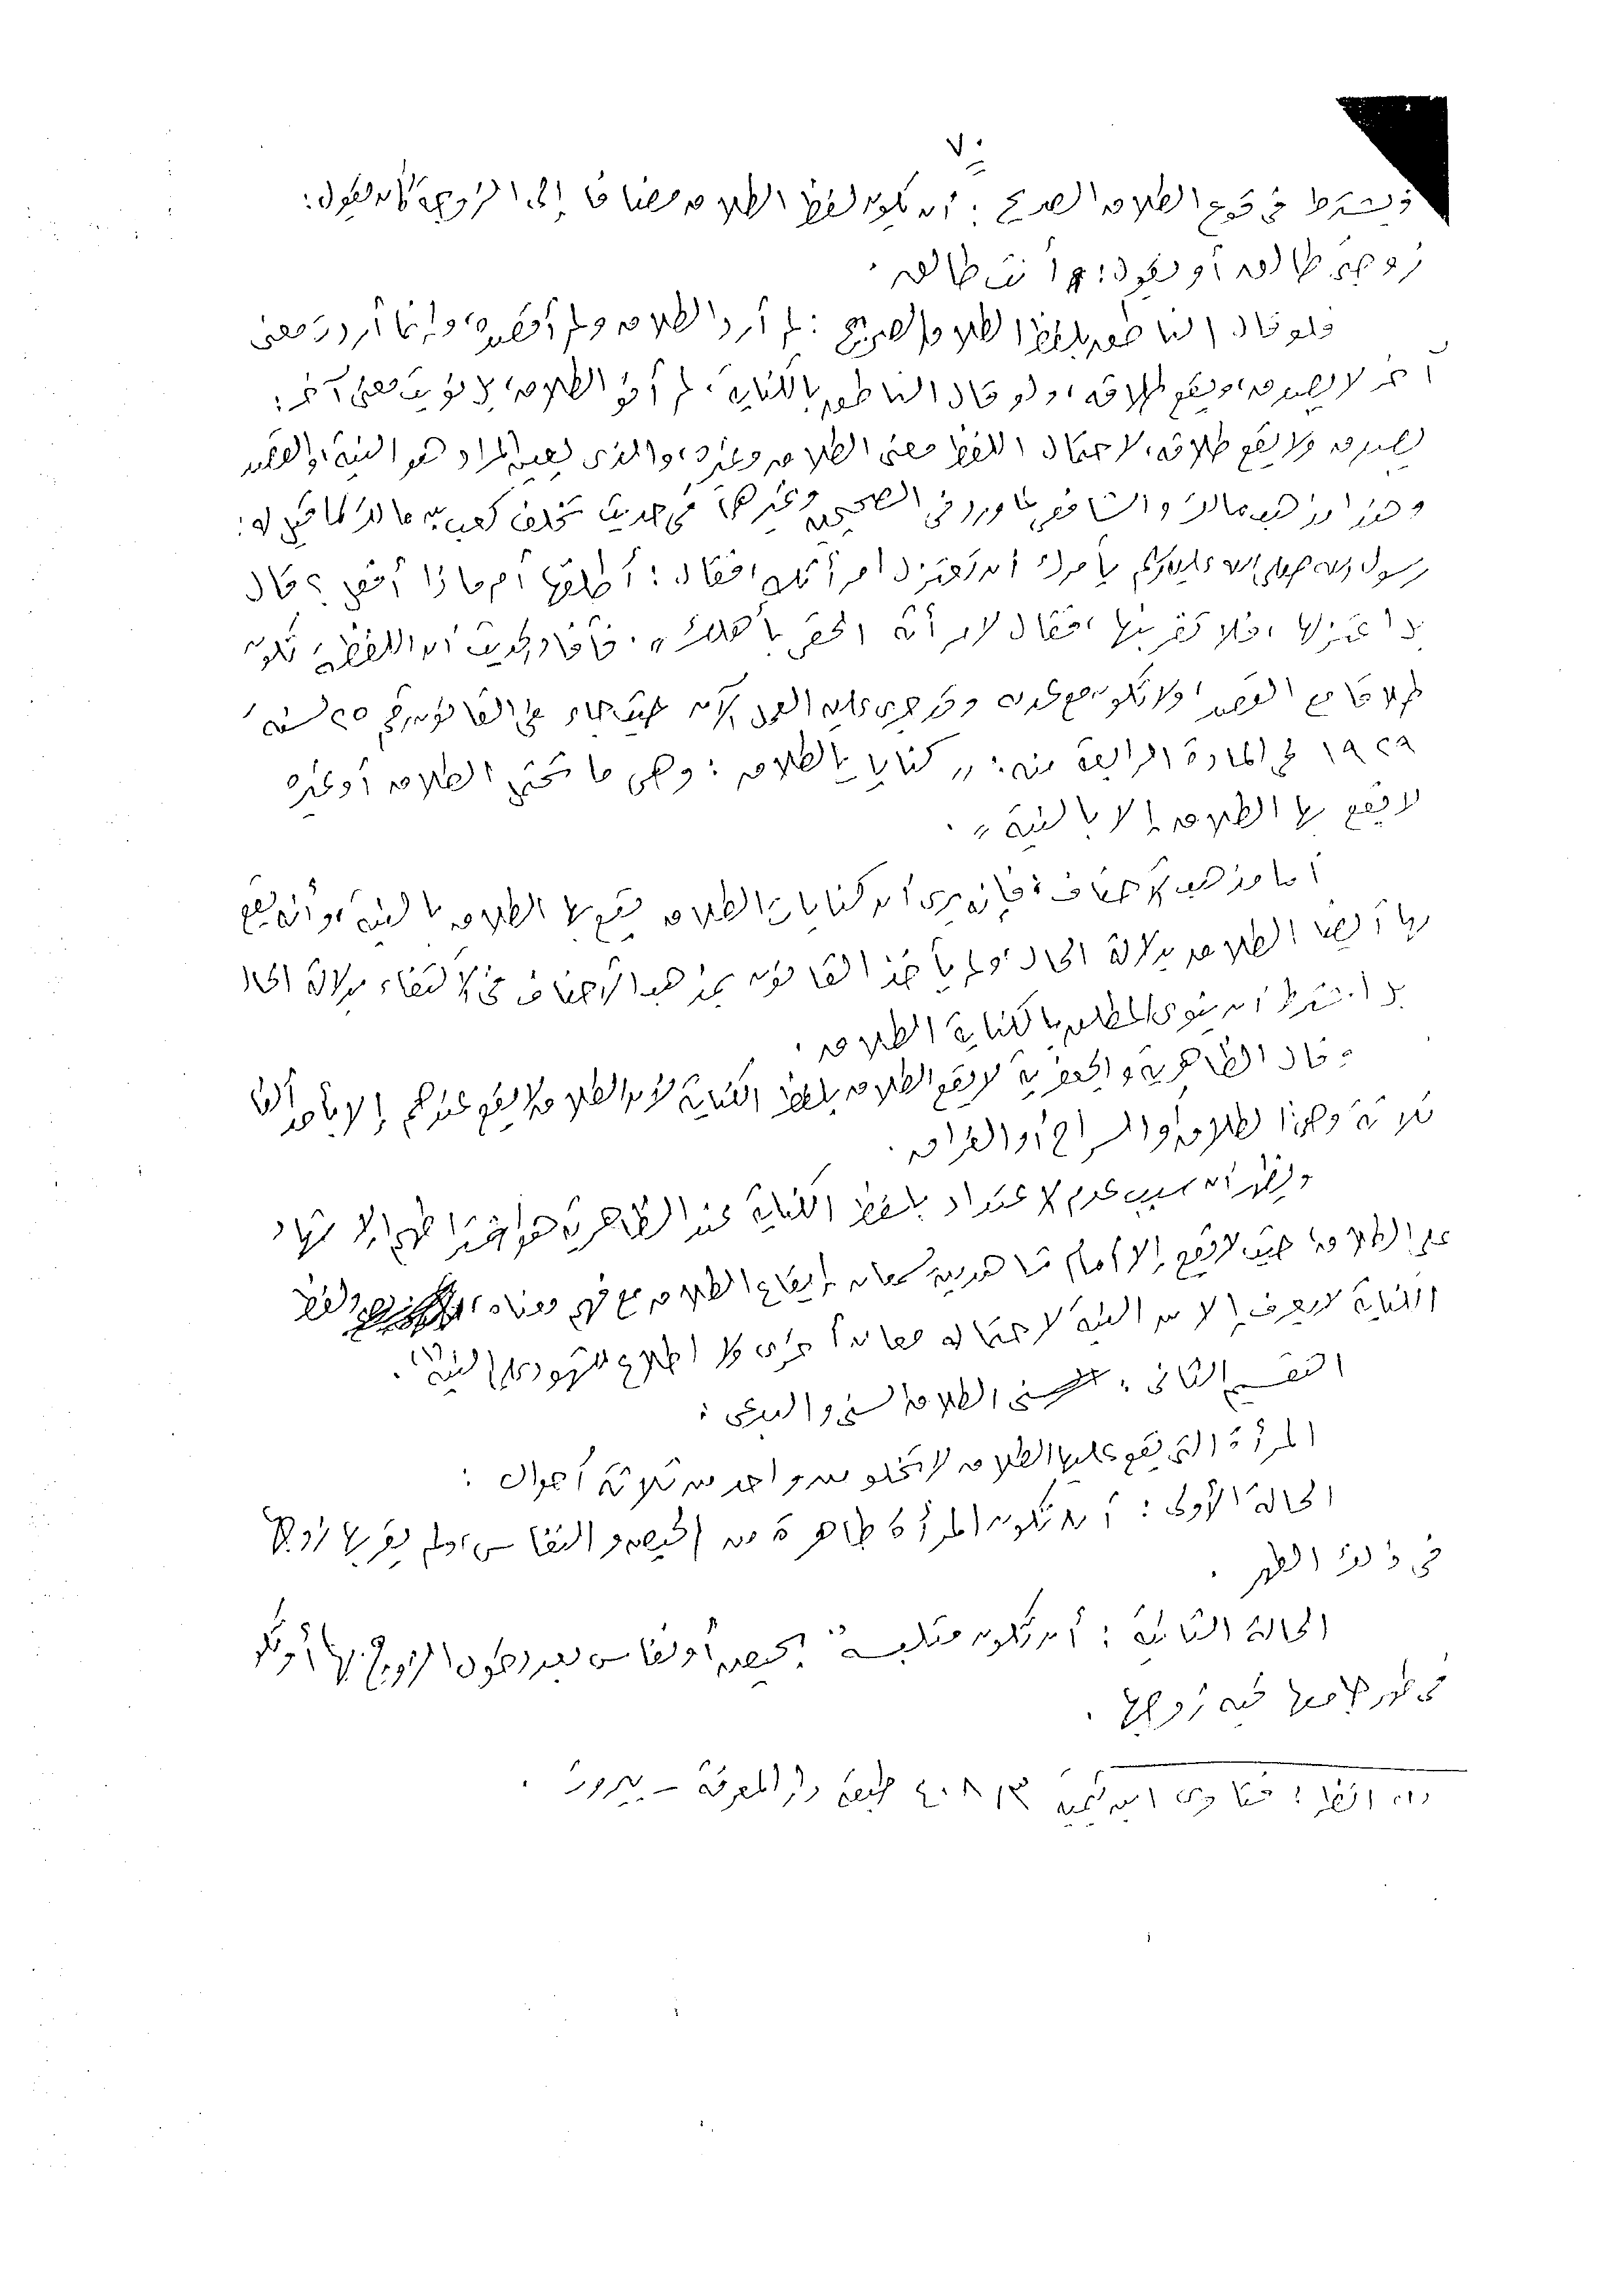 ٧٠
ويشترط فى وقوع الطلاق الصريح : أن يكون لفظ الطلاق مضافا إلى الزوجة كأن يقول :
زوجتى طالق أو يقول : أنت طالق .
فلو قال الناطق بلفظ الطلاق الصريح : لم أرد الطلاق ولم أقصده ، وإنما أردت معنى
آخر لا يصدق ، ويقع طلاقه ، ولو قال الناطق بالكناية ، لم أنو الطلاق ، بل نويت معنى آخر :
يصدق ولا يقع طلاقه ، لاحتمال اللفظ معنى الطلاق وغيره ، والذى يعين المراد هو النية ، والقصد
وهذا مذهب مالك والشافعى لما ورد فى الصحيحين وغيرهما فى حديث تخلف كعب بن مالك لما قيل له :
رسول الله صلى الله عليه وسلم يأمرك أن تعتزل امرأتك ، فقال : أطلقها أم ماذا أفعل ؟ قال
بل اعتزلها ، فلا تقربنها ، فقال لامرأته الحقى بأهلك » . فأفاد الحديث أن اللفظة تكون
طلاقا مع القصد ، ولا تكون مع عدمه وقد جرى عليه العمل الآن حيث جاء فى القانون رقم ٢٥ لسنة
١٩٢٩ فى المادة الرابعة منه : « كنايات الطلاق : وهى ما تحتمل الطلاق أو غيره
لا يقع بها الطلاق إلا بالنية » .
أما مذهب الأحناف : فإنه يرى أن كنايات الطلاق يقع بها الطلاق بالنية ، وأنه يقع
بها أيضا الطلاق بدلالة الحال ، ولم يأخذ القانون بمذهب الأحناف فى الاكتفاء بدلالة الحال
بل اشترط أن ينوى المطلق بالكناية الطلاق .
وقال الظاهرية والجعفرية لا يقع الطلاق بلفظ الكناية لأن الطلاق لا يقع عندهم إلا بأحد ألفاظ
ثلاثة وهى الطلاق أو السراح أو الفراق .
ويظهر أن سبب عدم الاعتداد بلفظ الكناية عند الظاهرية هو اشتراطهم الإشهاد
على الطلاق ، حيث لا يقع إلا أمام شاهدين يسمعان إيقاع الطلاق مع فهم معناه ، ولفظ
الكناية لا يعرف إلا من النية لاحتماله معان أخرى ولا اطلاع للشهود على النية (١) .
التقسيم الثانى : الطلاق السنى والبدعى :
المرأة التى يقع عليها الطلاق لا تخلو من واحد من ثلاثة أحوال :
الحالة الأولى : أن تكون المرأة طاهرة من الحيض والنفاس ، ولم يقربها زوجها
فى ذلك الطهر .
الحالة الثانية : أن تكون متلبسة بحيض أو نفاس بعد دخول الزوج بها أو تكون
فى طهر جامعها فيه زوجها .
(١) انظر : فتاوى ابن تيمية ٣ / ٤٠٨ طبعة دار المعرفة – بيروت .